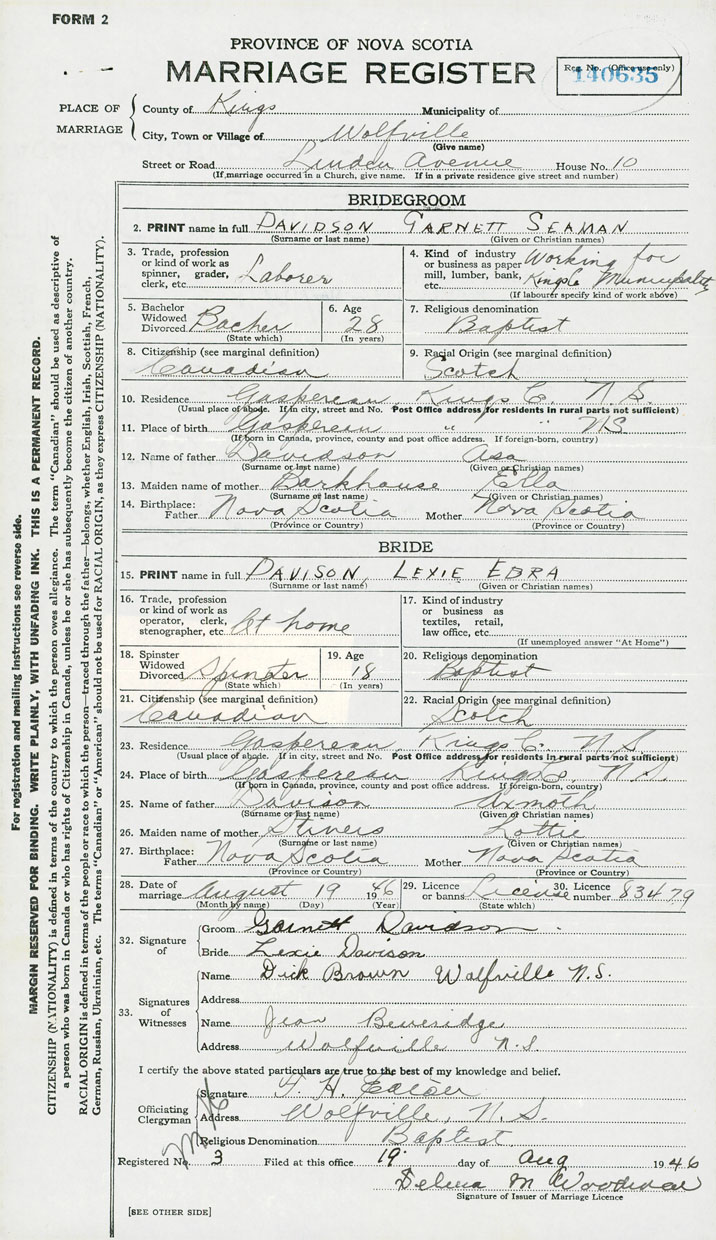 FORM 2
PROVINCE OF NOVA SCOTIA
MARRIAGE REGISTER
Reg. No. (Office use only)
140635
PLACE OF MARRIAGE
County of Kings Municipality of
City, Town or Village of Wolfville
(Give name)
Street or Road Linden Avenue House No. 10
(If marriage occurred in a Church, give name. If in a private residence give street and number)
BRIDEGROOM
2. PRINT name in full DAVIDSON GARNETT SEAMAN
(Surname or last name) (Given or Christian names)
3. Trade, profession or kind of work as spinner, grader, clerk, etc. Laborer
4. Kind of industry or business as paper mill, lumber, bank, etc. Working for Kings Co Municipality
(If labourer specify kind of work above)
5. Bachelor Widowed Divorced Bacher
(State which)
6. Age 28
(In years)
7. Religious denomination
Baptist
8. Citizenship (see marginal definition)
Canadian
9. Racial Origin (see marginal definition)
Scotch
10. Residence Gaspereau Kings Co. N.S.
(Usual place of abode. If in city, street and No. Post Office address for residents in rural parts not sufficient)
11. Place of birth Gaspereau " " NS
(If born in Canada, province, county and post office address. If foreign-born, country)
12. Name of father Davidson Asa
(Surname or last name) (Given or Christian names)
13. Maiden name of mother Barkhouse Ella
(Surname or last name) (Given or Christian names)
14. Birthplace: Father Nova Scotia Mother Nova Scotia
(Province or Country) (Province or Country)
BRIDE
15. PRINT name in full DAVISON, LEXIE EDRA
(Surname or last name) (Given or Christian names)
16. Trade, profession or kind of work as operator, clerk, stenographer, etc. At home
17. Kind of industry or business as textiles, retail, law office, etc.
(If unemployed answer "At Home")
18. Spinster Widowed Divorced Spinster
(State which)
19. Age 18
(In years)
20. Religious denomination
Baptist
21. Citizenship (see marginal definition)
Canadian
22. Racial Origin (see marginal definition)
Scotch
23. Residence Gaspereau Kings Co. N.S.
(Usual place of abode. If in city, street and No. Post Office address for residents in rural parts not sufficient)
24. Place of birth Gaspereau Kings Co. N.S.
(If born in Canada, province, county and post office address. If foreign-born, country)
25. Name of father Davison
(Surname or last name) (Given or Christian names)
26. Maiden name of mother Stivers Lottie
(Surname or last name) (Given or Christian names)
27. Birthplace: Father Nova Scotia Mother Nova Scotia
(Province or Country) (Province or Country)
28. Date of marriage August 19 1946
(Month by name) (Day) (Year)
29. Licence or banns License
(State which)
30. Licence number 83479
32. Signature of
Groom Garnett Davidson
Bride Lexie Davison
33. Signatures of Witnesses
Name Dick Brown Wolfville N.S.
Address
Name Jean Beveridge
Address Wolfville N.S.
I certify the above stated particulars are true to the best of my knowledge and belief.
Officiating Clergyman
Signature H. Eaton
Address Wolfville, N.S.
Religious Denomination Baptist
Registered No. 3 Filed at this office 19 day of Aug 1946
Delma M Woodman
Signature of Issuer of Marriage Licence
[SEE OTHER SIDE]
For registration and mailing instructions see reverse side.
MARGIN RESERVED FOR BINDING. WRITE PLAINLY, WITH UNFADING INK. THIS IS A PERMANENT RECORD.
CITIZENSHIP (NATIONALITY) is defined in terms of the country to which the person owes allegiance. The term "Canadian" should be used as descriptive of
a person who was born in Canada or who has rights of Citizenship in Canada, unless he or she has subsequently become the citizen of another country.
RACIAL ORIGIN is defined in terms of the people or race to which the person—traced through the father—belongs, whether English, Irish, Scottish, French,
German, Russian, Ukrainian, etc. The terms "Canadian" or "American" should not be used for RACIAL ORIGIN, as they express CITIZENSHIP (NATIONALITY).